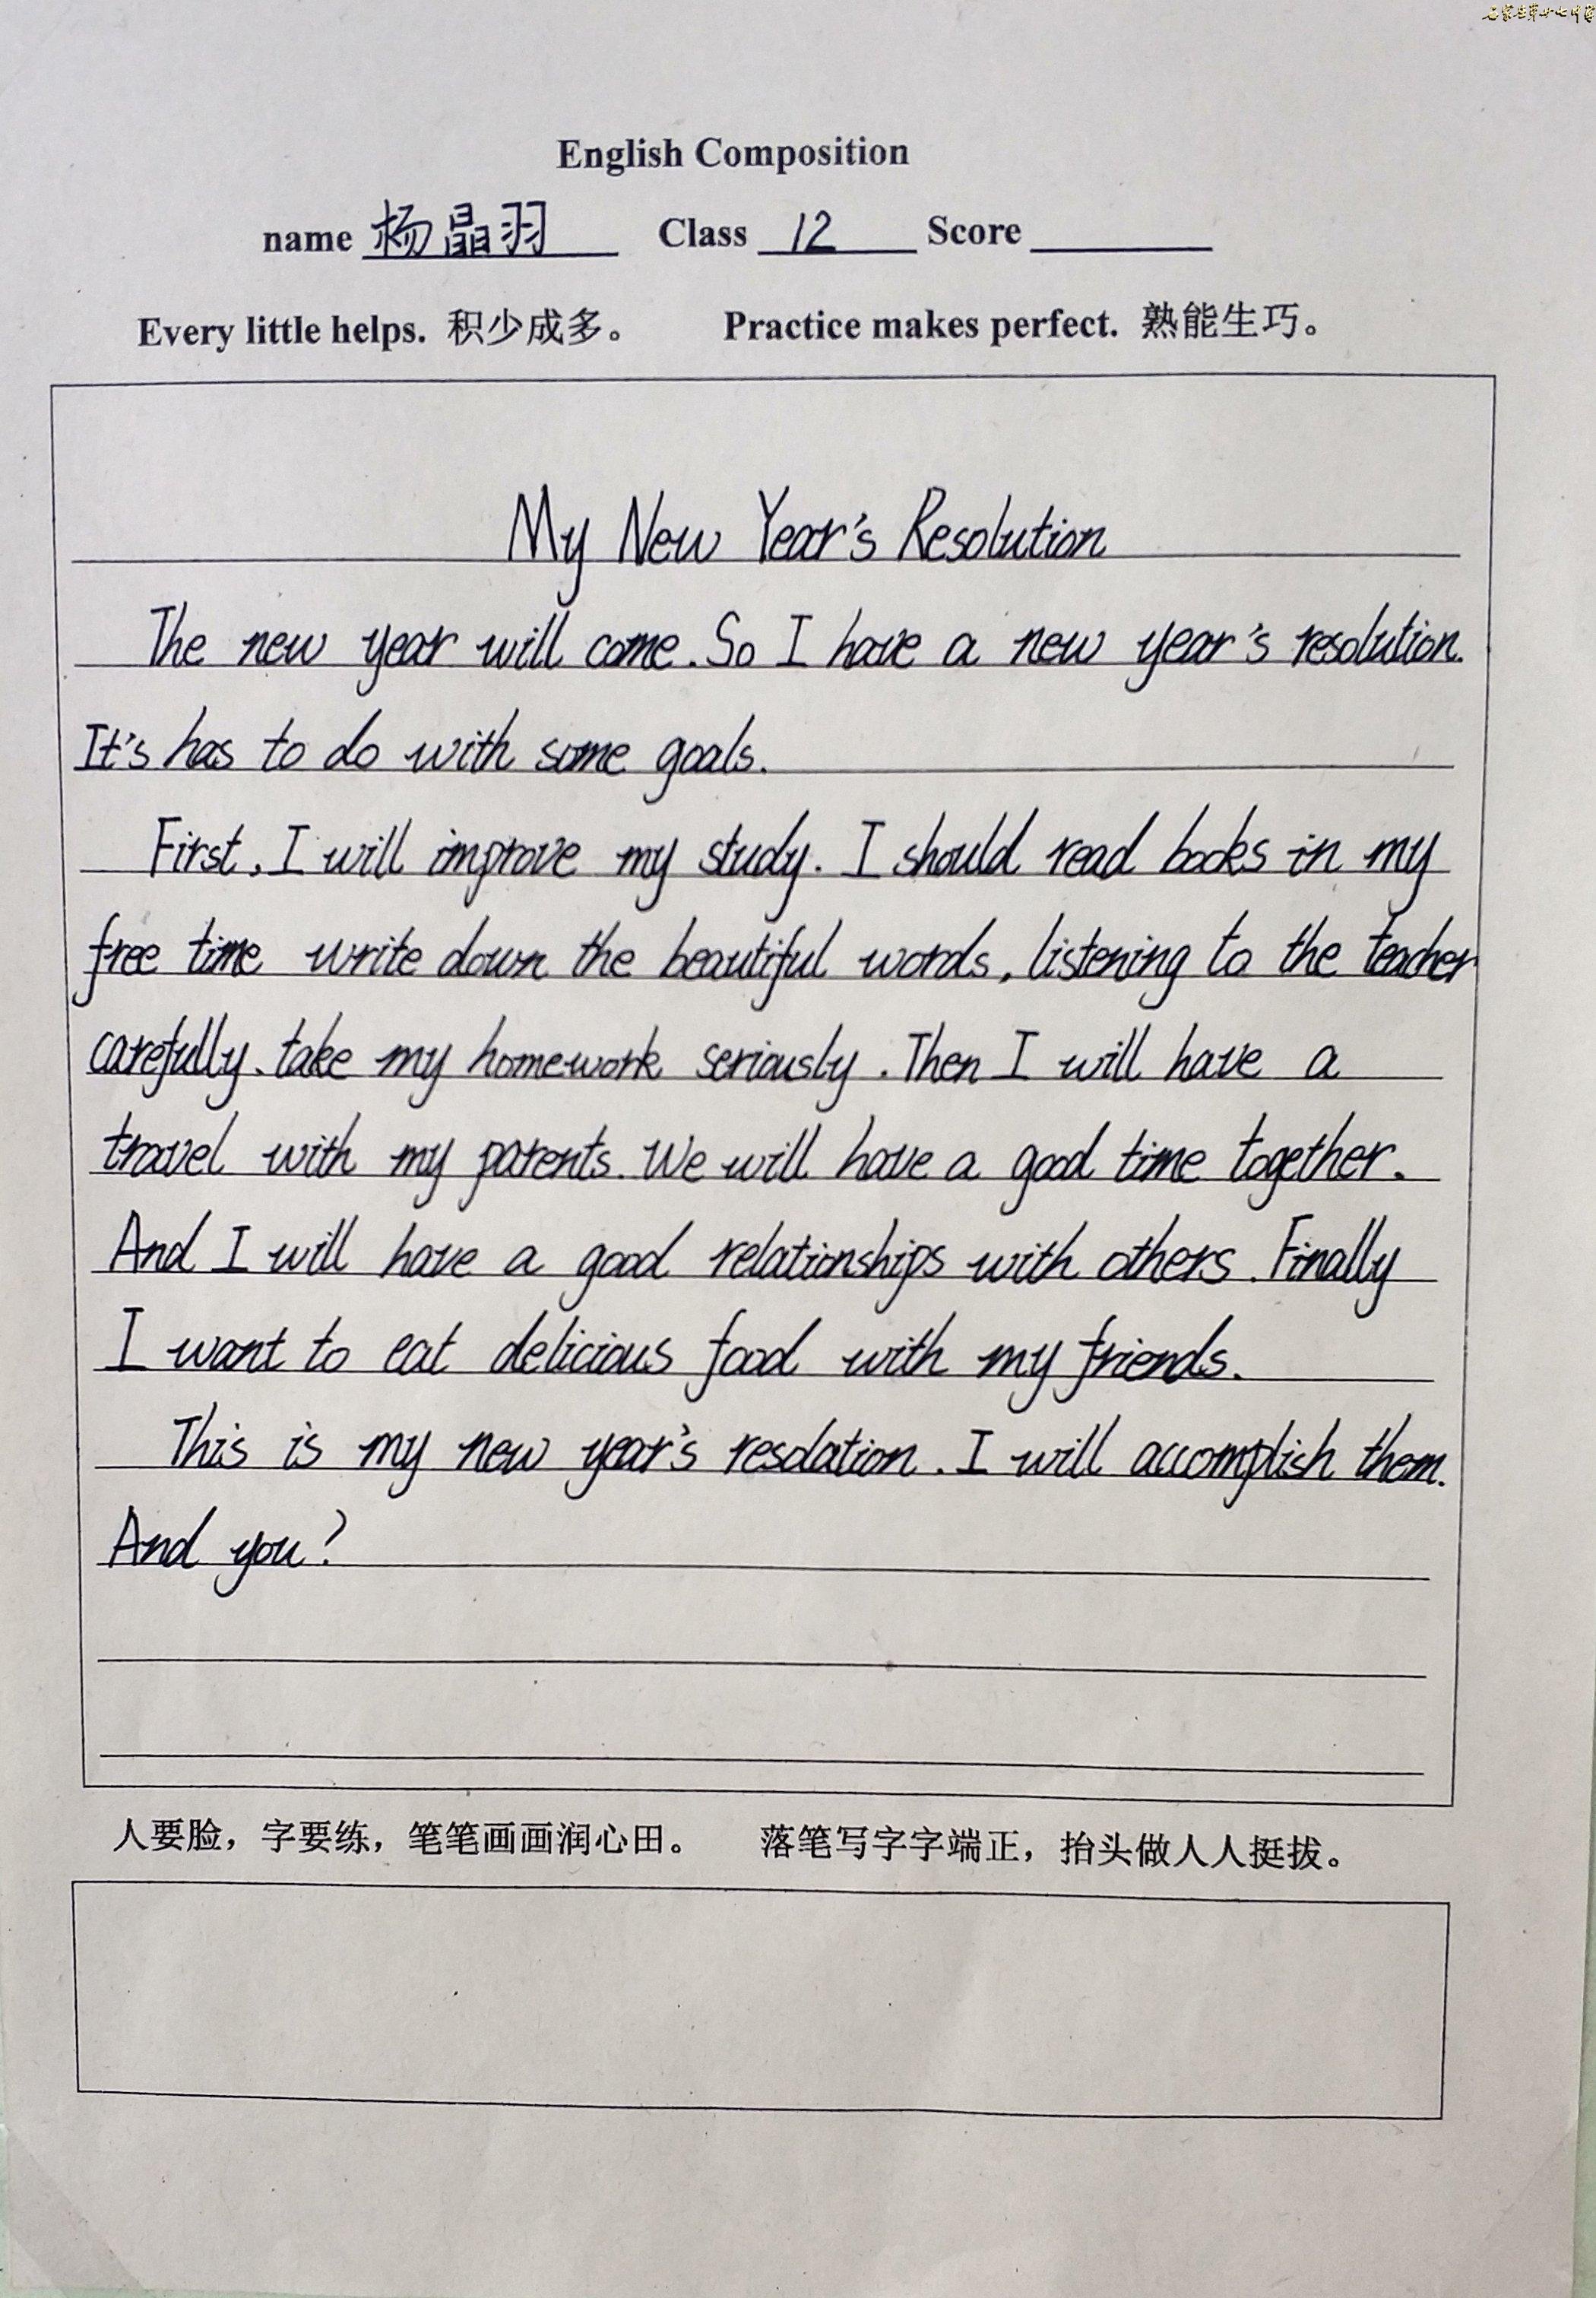 English Composition
name 杨晶羽 Class 12 Score
Every little helps. 积少成多。 Practice makes perfect. 熟能生巧。
My New Year's Resolution
The new year will come. So I have a new year's resolution.
It's has to do with some goals.
First, I will improve my study. I should read books in my
free time write down the beautiful words, listening to the teacher
carefully. take my homework seriously. Then I will have a
travel with my parents. We will have a good time together.
And I will have a good relationships with others. Finally
I want to eat delicious food with my friends.
This is my new year's resolation. I will accomplish them.
And you?
人要脸，字要练，笔笔画画润心田。 落笔写字字端正，抬头做人人挺拔。